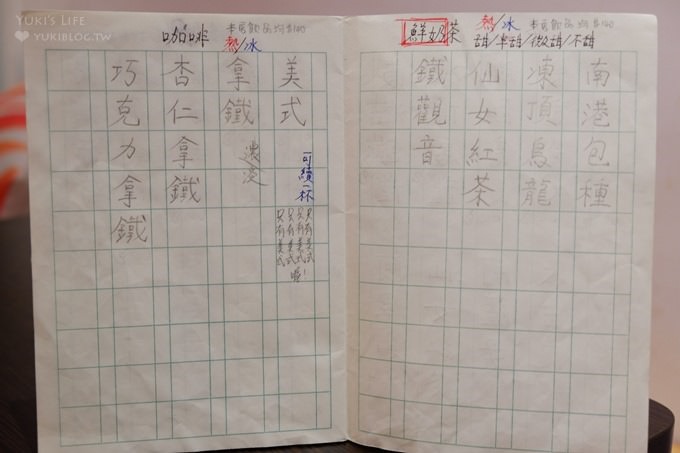 YUKI'S LIFE
YUKIBLOG.TW
鮮奶茶
熱/冰
本頁飲品均$140
甜/半甜/微甜/不甜
南港包種
凍頂烏龍
仙女紅茶
鐵觀音
咖啡
熱/冰
本頁飲品均$140
美式
可續一杯
只有美式
只有美式
只有美式
只有美式喔!
拿鐵
濃淡
杏仁拿鐵
巧克力拿鐵